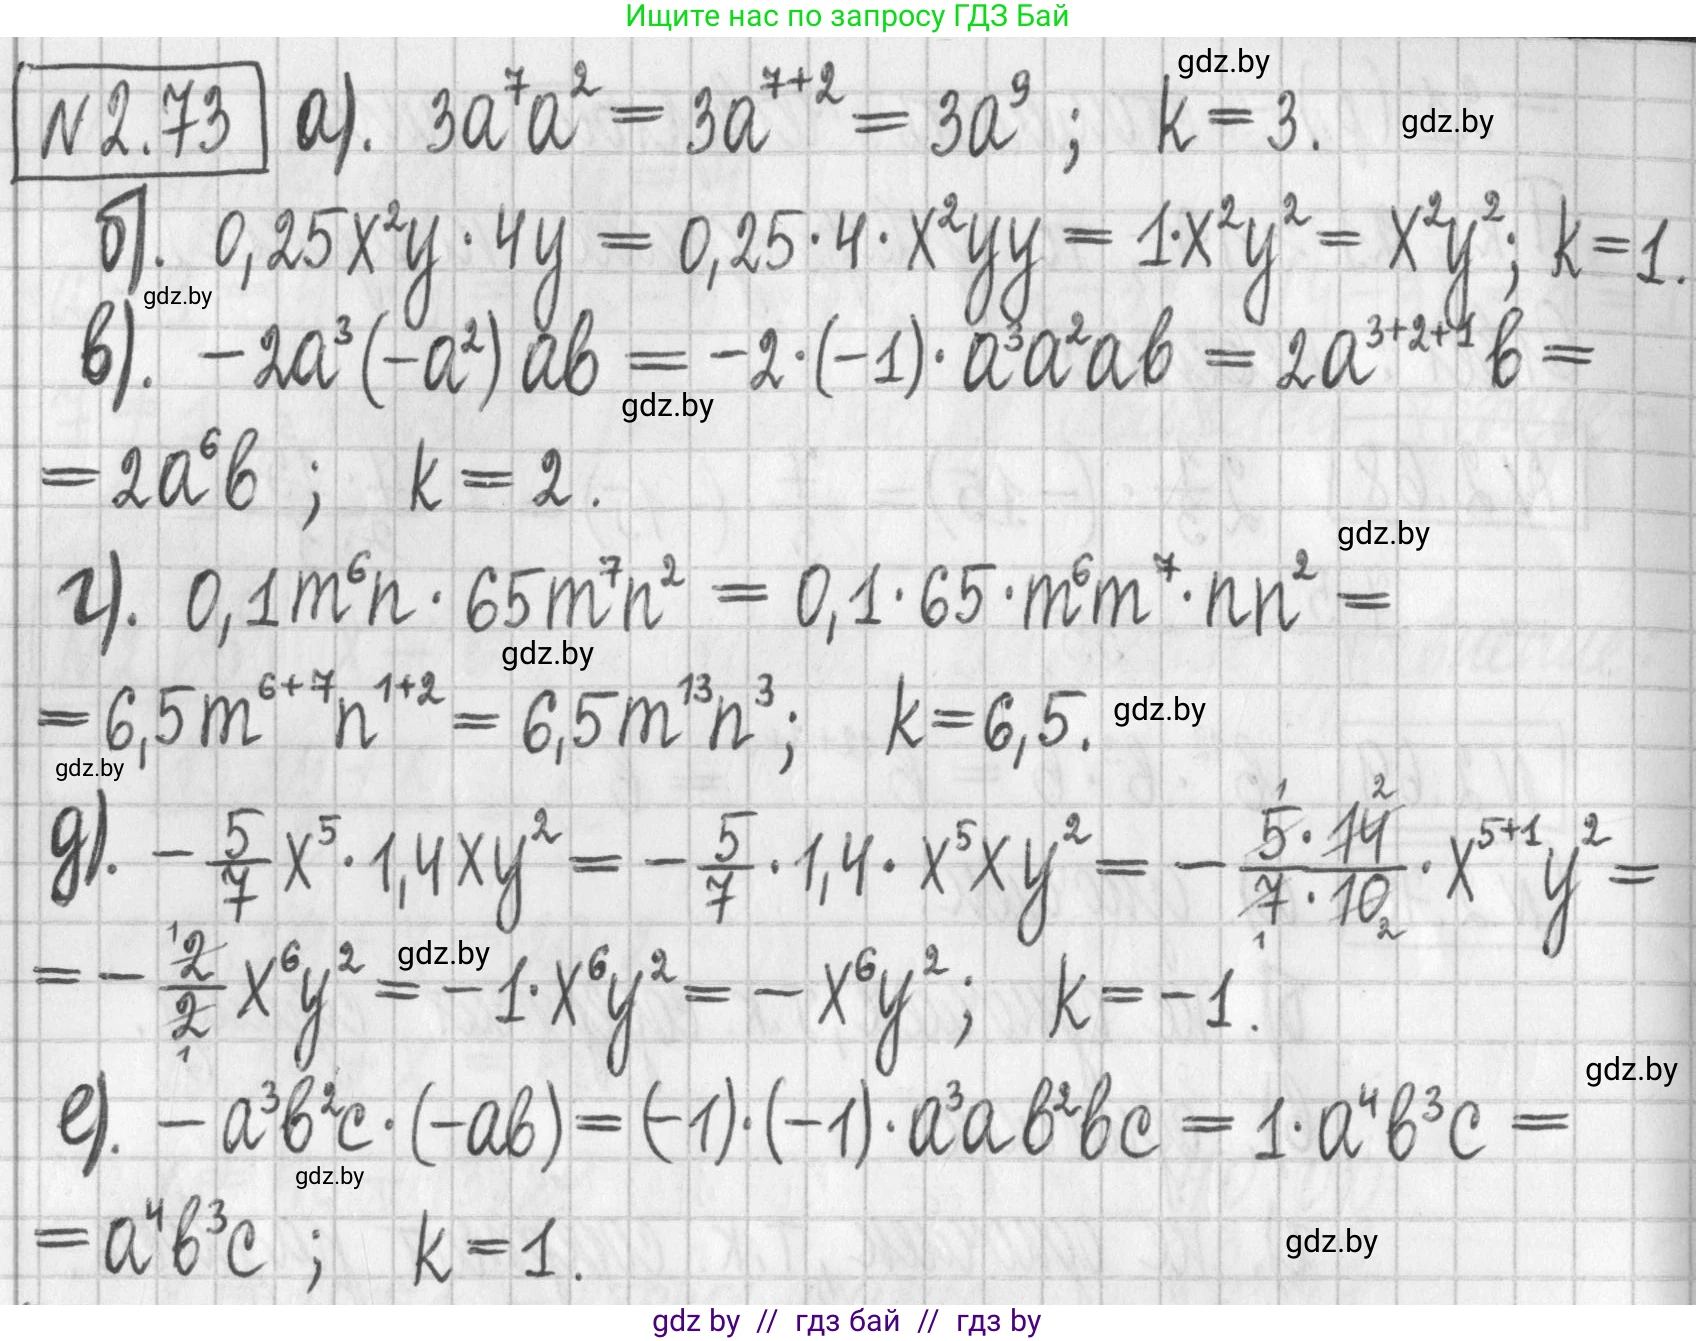 Ищите нас по запросу ГДЗ Бай
№2.73 а). 3a⁷a² = 3a⁷⁺² = 3a⁹ ; k = 3.
gdz.by
gdz.by
б). 0,25x²y · 4y = 0,25 · 4 · x²yy = 1·x²y² = x²y²; k=1.
gdz.by
в). -2a³(-a²)ab = -2·(-1)·a³a²ab = 2a³⁺²⁺¹b =
gdz.by
= 2a⁶b ; k = 2.
gdz.by
г). 0,1m⁶n · 65m⁷n² = 0,1·65·m⁶m⁷·nn² =
gdz.by
= 6,5m⁶⁺⁷n¹⁺² = 6,5m¹³n³; k=6,5.
gdz.by
gdz.by
д). -5/7x⁵·1,4xy² = -5/7·1,4·x⁵xy² = -(5·14)/(7·10)·x⁵⁺¹y² =
1 2 1 2
= -2/2x⁶y² = -1·x⁶y² = -x⁶y²; k = -1.
1 1
gdz.by
gdz.by
е). -a³b²c·(-ab) = (-1)·(-1)·a³ab²bc = 1·a⁴b³c =
gdz.by
= a⁴b³c ; k = 1.
gdz.by
gdz by // гдз бай // гдз by